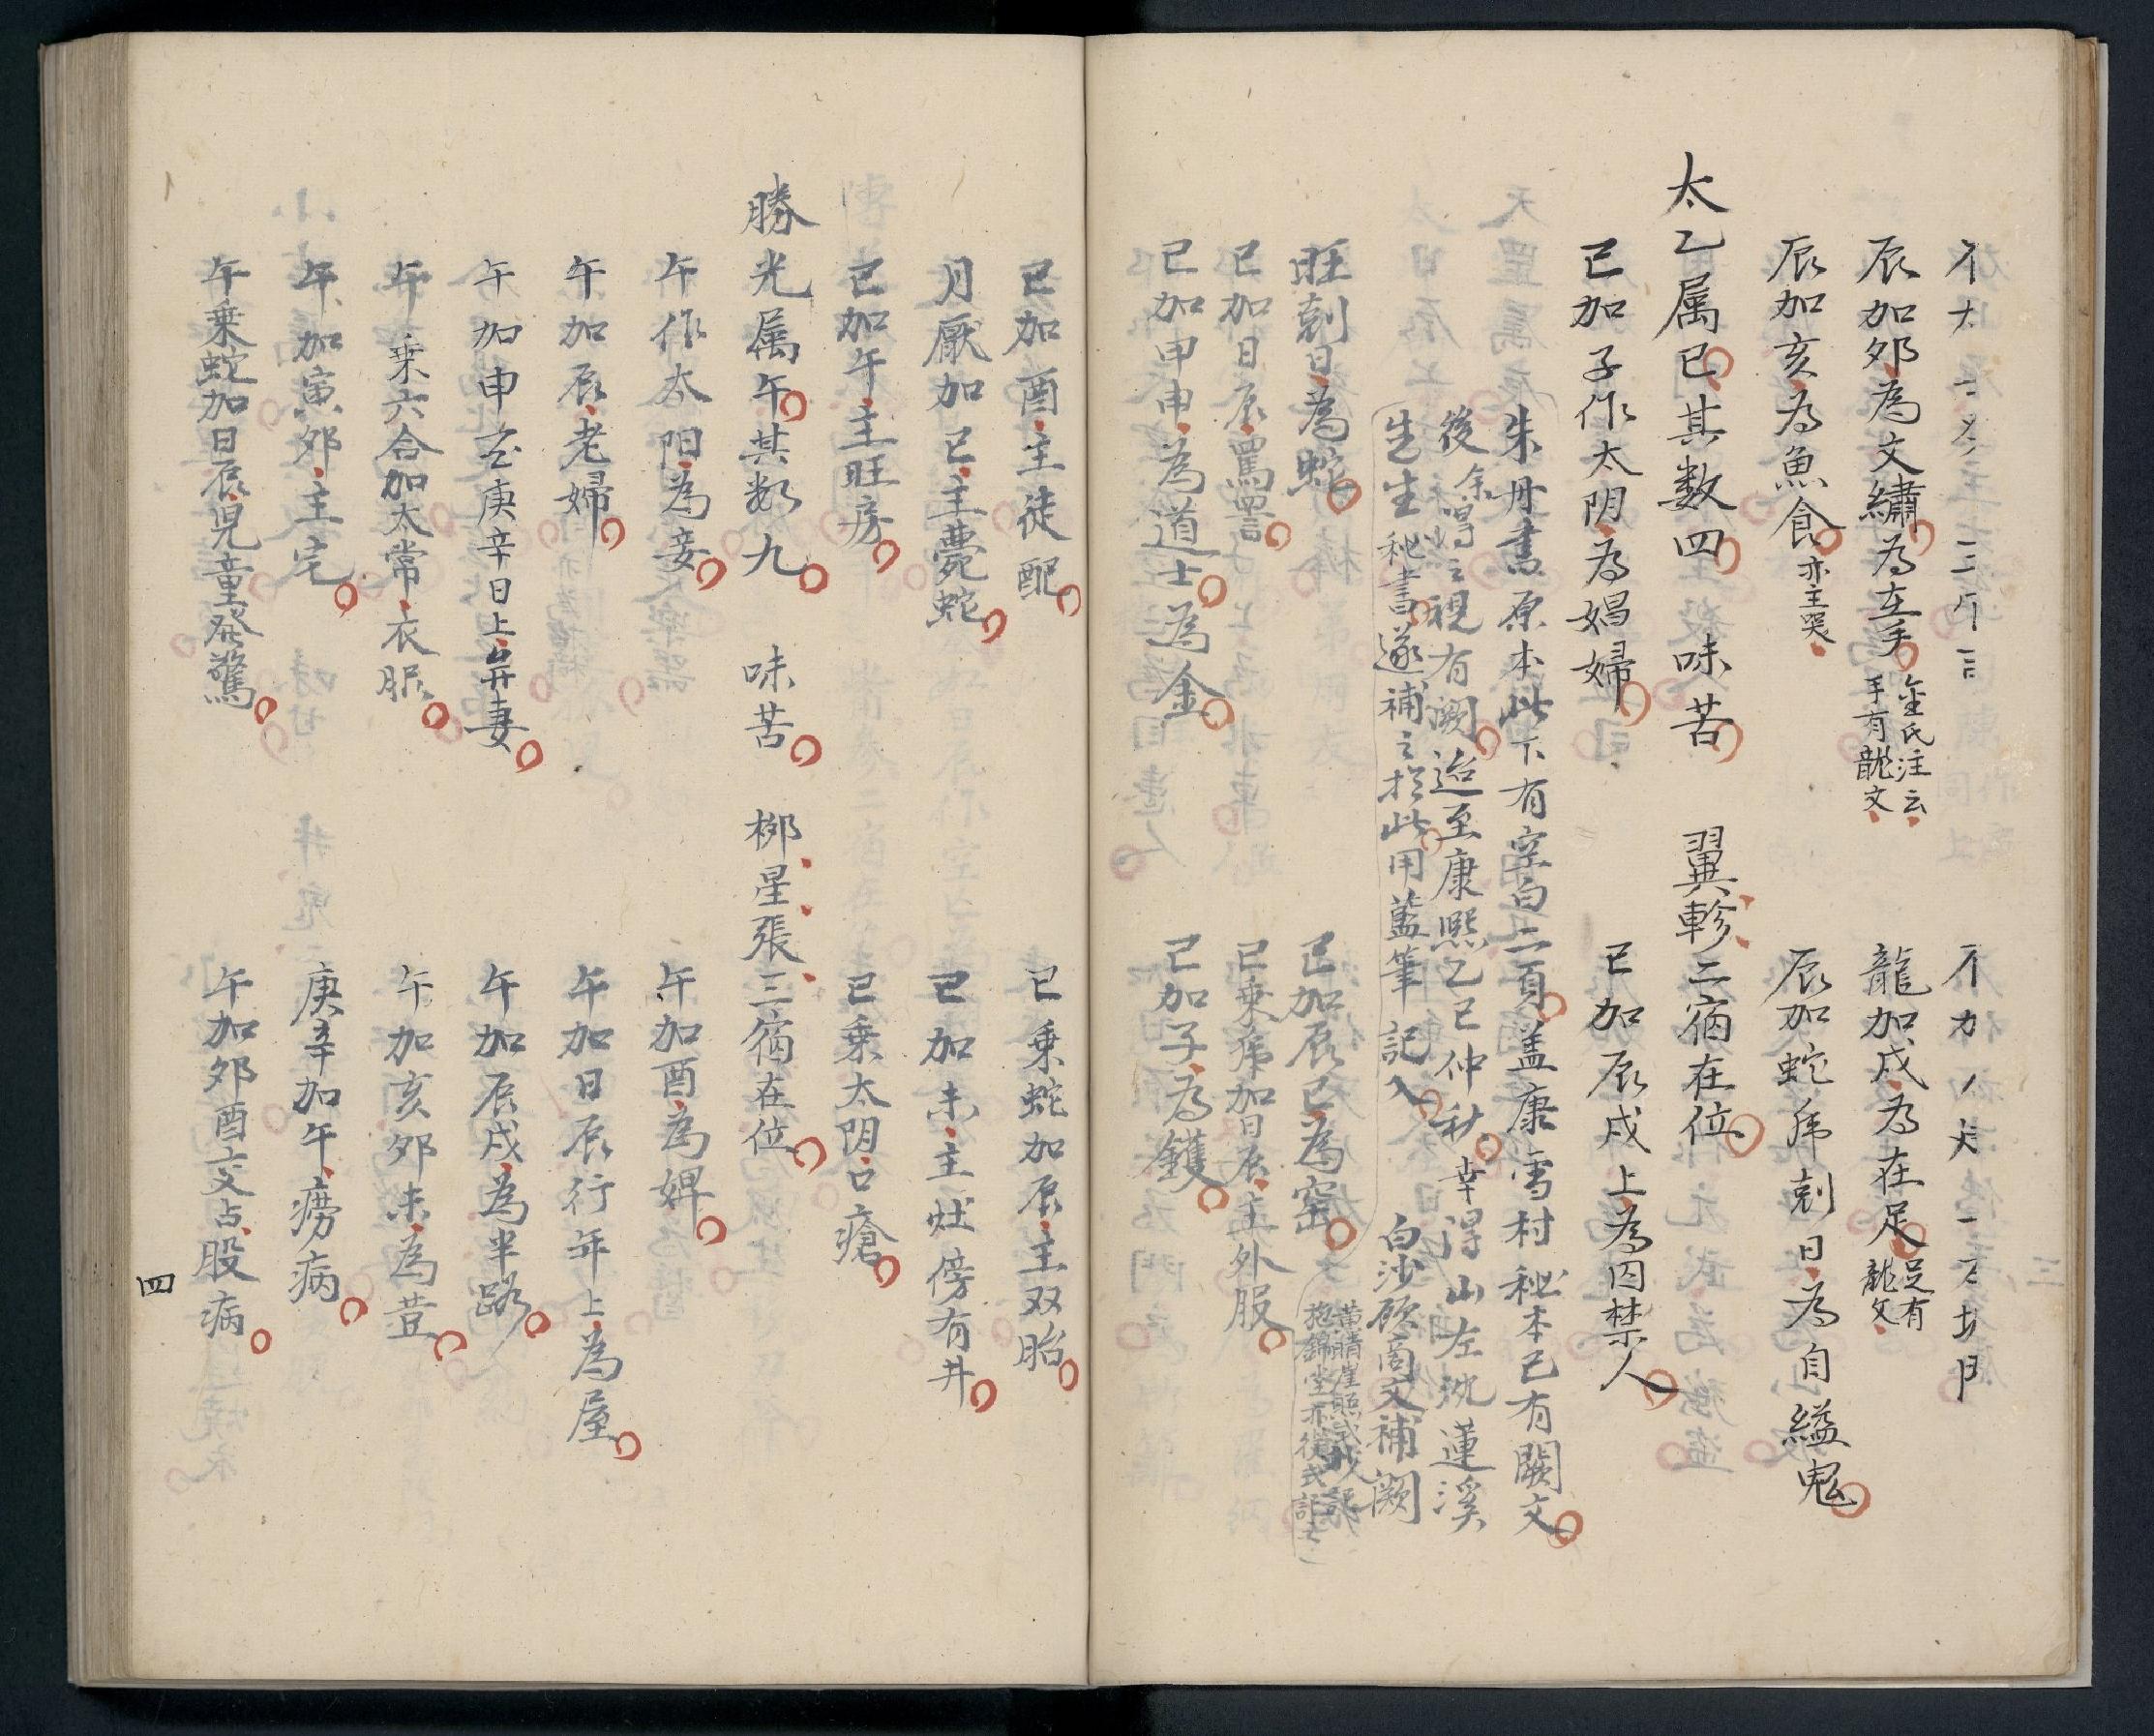 辰加夘為文繡為在手 金氏注云手有龍文 龍加戌為在足 足有龍文
辰加亥為魚食 亦主哭 辰加蛇虎剋日為自縊鬼
太乙属巳其数四 味苦 翼軫二宿在位
巳加子作太阴為娼婦 巳加辰戌上為囚禁人
朱丹書原本此下有空白二頁盖康雪村秘本已有闕文
後余得之視有闕迨至康熙乙巳仲秋幸得山左沈蓮溪
先生秘書遂補之於此用藍筆記入 白沙顾商文補闕
旺剋日為蛇 巳加辰巳為窑
黄晴崖照式錄
抱錦堂亦從式記之
巳加日辰罵詈 巳乗虎加日辰主外服
巳加申申為道士為金 巳加子為鑊
巳加酉主徒配 巳乗蛇加辰主双胎
月厭加巳主斃蛇 巳加未主灶傍有井
巳加午主旺房 巳乗太阴口瘡
勝光属午其数九 味苦 栁星張三宿在位
午作太阳為妾 午加酉為婢
午加辰老婦 午加日辰行年上為屋
午加申玄庚辛日上弃妻 午加辰戌為半路
午乗六合加太常衣服 午加亥夘未為荳
午加寅夘主宅 庚辛加午癆病
午乗蛇加日辰児童發驚 午加夘酉交占股病
四